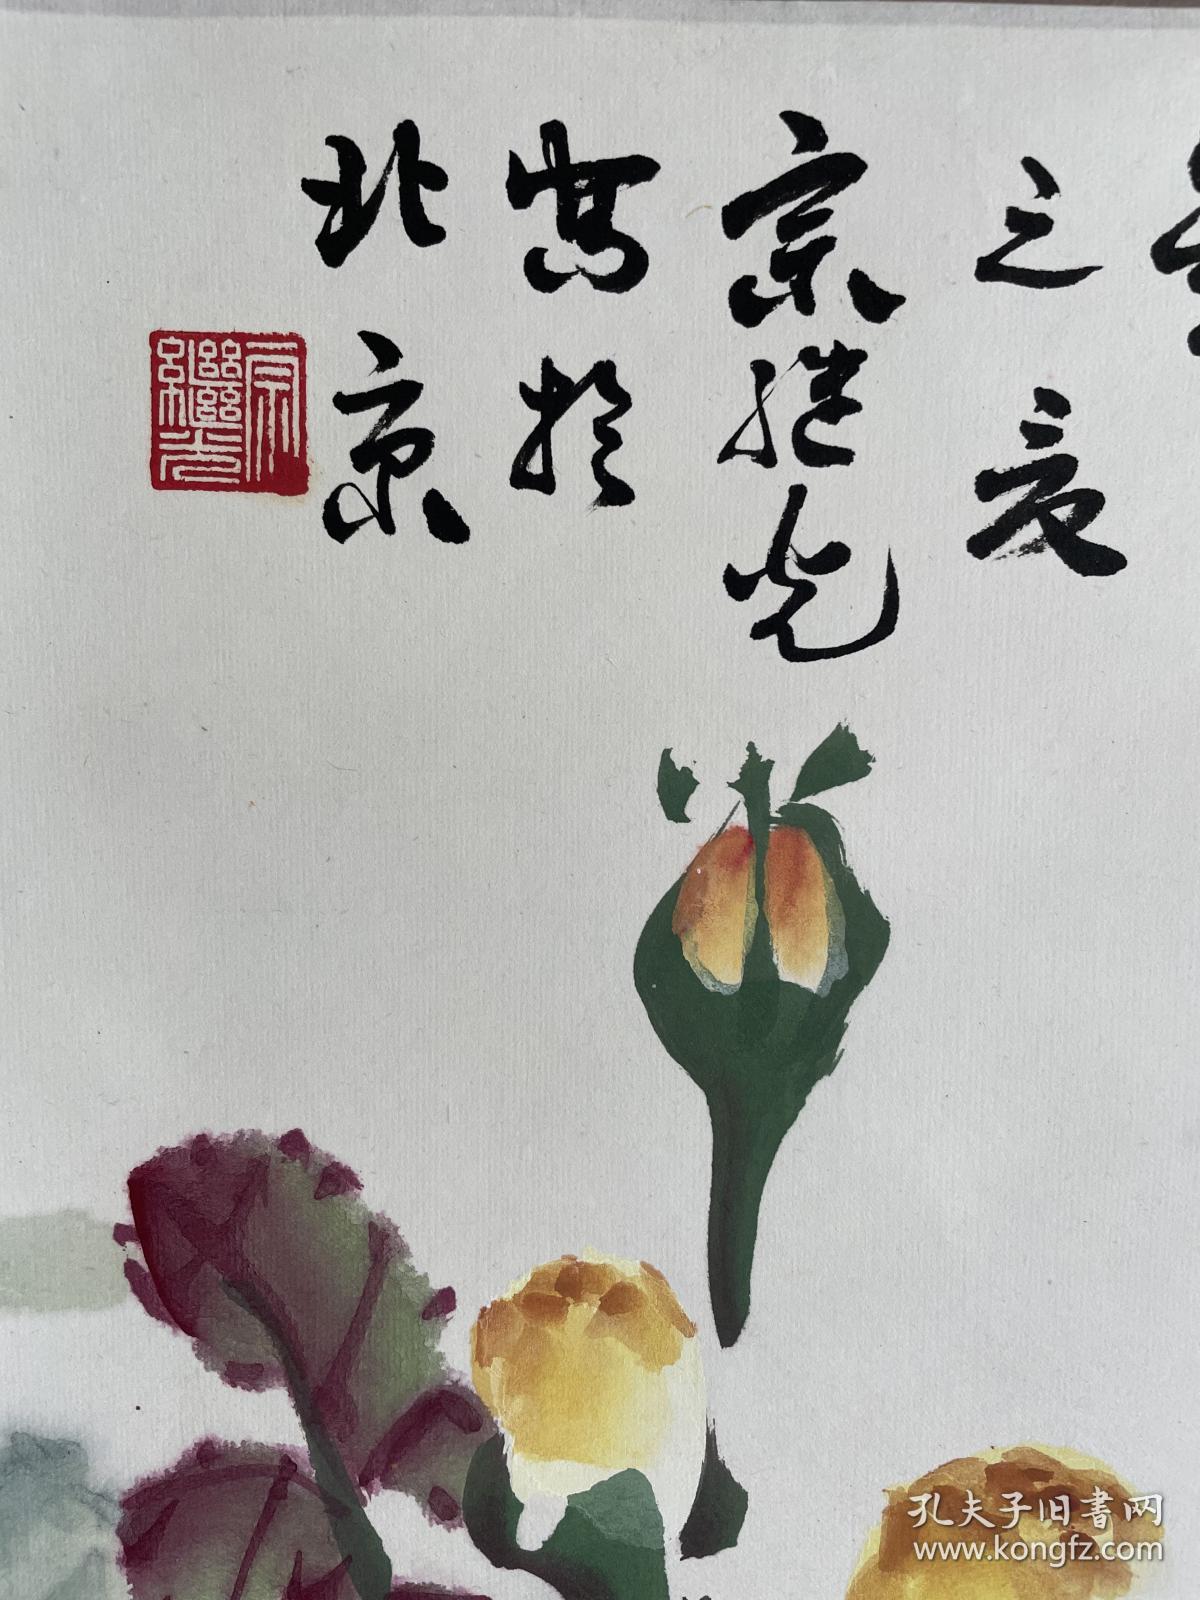 之夏
宗继光
寫於
北京
宗繼光
孔夫子旧書网
www.kongfz.com